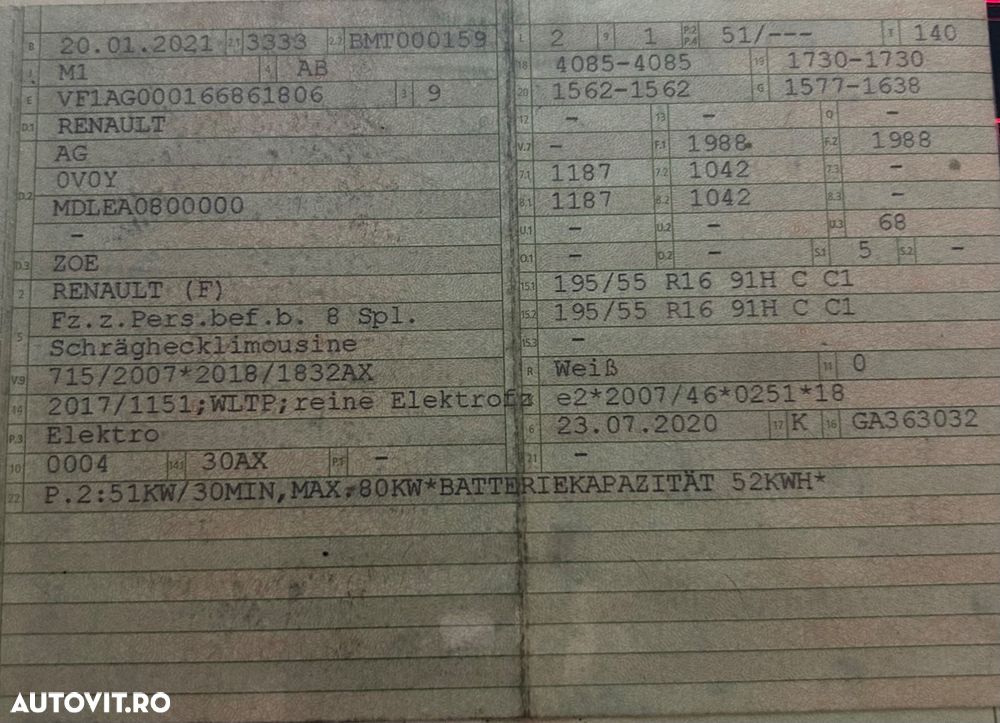 B 20.01.2021 2.1 3333 2.2 BMT000159
J M1 4 AB
E VF1AG000166861806 3 9
D.1 RENAULT
AG
D.2 0V0Y
MDLEA0800000
-
D.3 ZOE
2 RENAULT (F)
5 Fz.z.Pers.bef.b. 8 Spl.
Schräghecklimousine
V.9 715/2007*2018/1832AX
14 2017/1151;WLTP;reine Elektrofz
P.3 Elektro
10 0004 14.1 30AX P.1 -
22 P.2:51KW/30MIN,MAX.80KW*BATTERIEKAPAZITÄT 52KWH*
L 2 9 1 P.2 P.4 51/--- T 140
18 4085-4085 19 1730-1730
20 1562-1562 G 1577-1638
12 - 13 - Q -
V.7 - F.1 1988 F.2 1988
7.1 1187 7.2 1042 7.3 -
8.1 1187 8.2 1042 8.3 -
U.1 - U.2 - U.3 68
O.1 - O.2 - S.1 5 S.2 -
15.1 195/55 R16 91H C C1
15.2 195/55 R16 91H C C1
15.3 -
R Weiß 11 0
K e2*2007/46*0251*18
6 23.07.2020 17 K 16 GA363032
21 -
AUTOVIT.RO